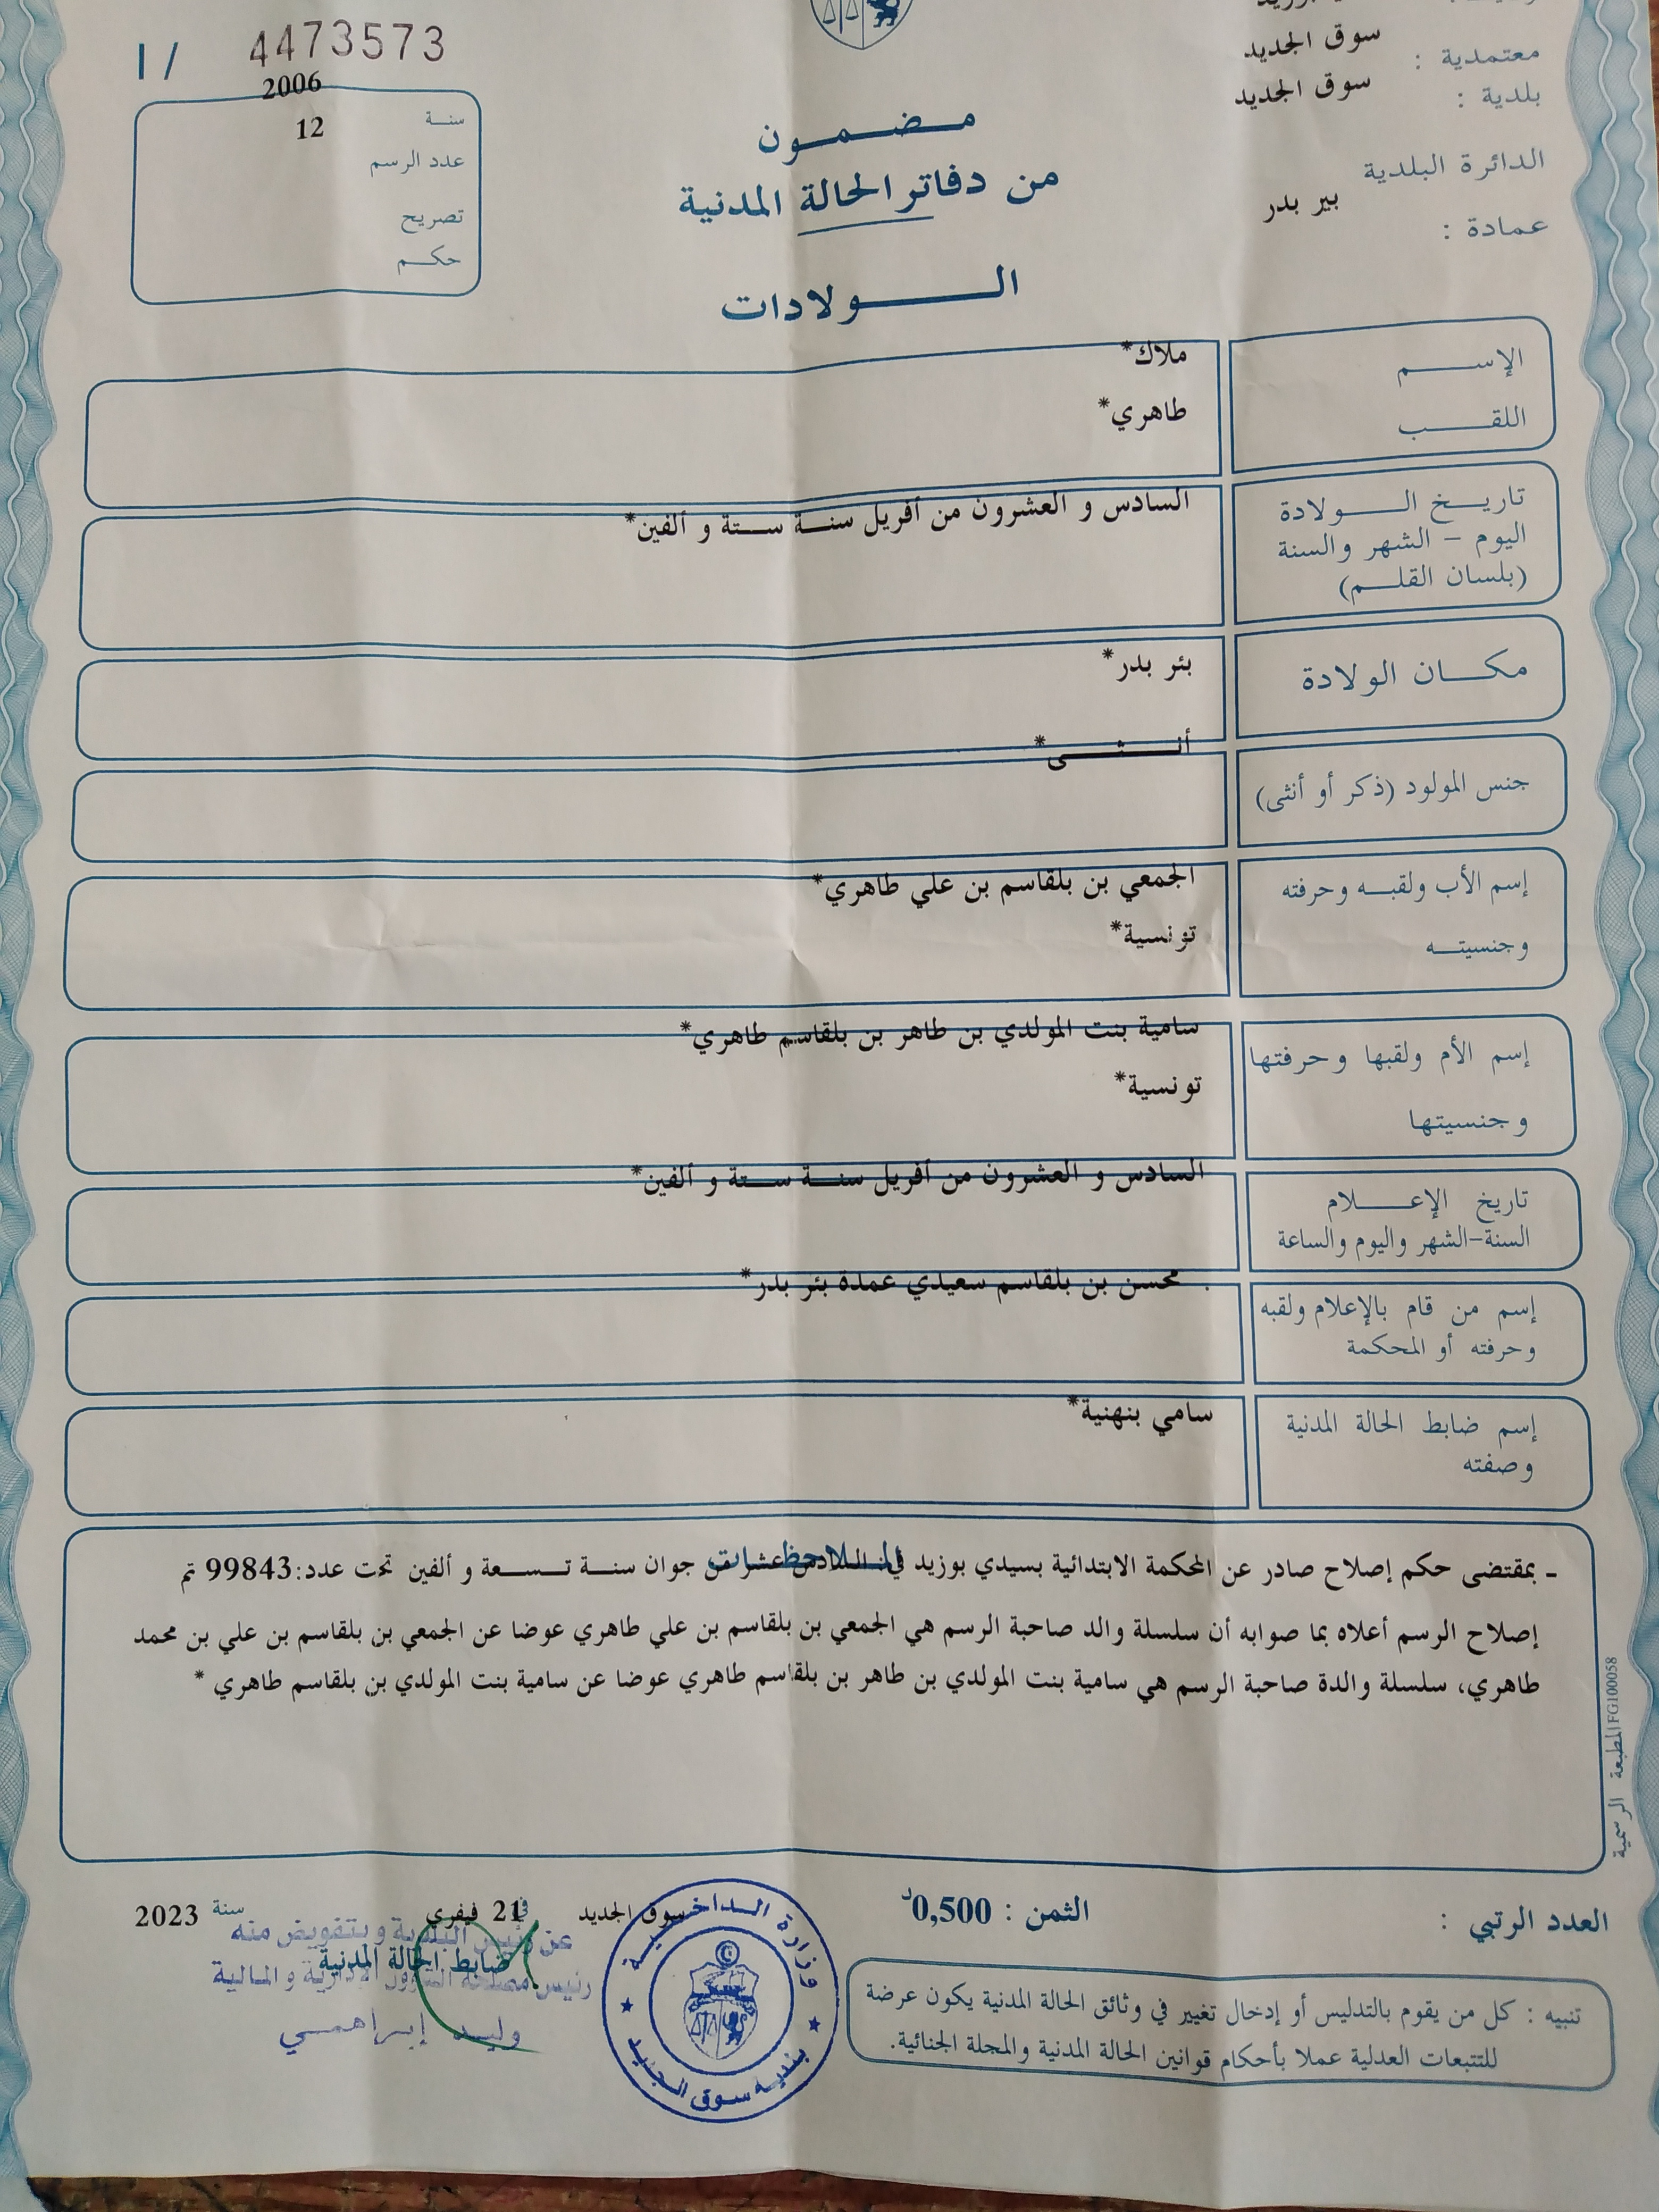 I / 4473573
معتمدية : سوق الجديد
بلدية : سوق الجديد
الدائرة البلدية
عمادة : بير بدر
سنة 2006
عدد الرسم 12
تصريح
حكم
مضمون
من دفاتر الحالة المدنية
الولادات
الإسم ملاك*
اللقب طاهري*
تاريخ الولادة السادس و العشرون من أفريل سنة ستة و ألفين*
اليوم – الشهر والسنة
(بلسان القلم)
مكان الولادة بئر بدر*
جنس المولود (ذكر أو أنثى) أنثى*
إسم الأب ولقبه وحرفته الجمعي بن بلقاسم بن علي طاهري*
وجنسيته تونسية*
إسم الأم ولقبها وحرفتها سامية بنت المولدي بن طاهر بن بلقاسم طاهري*
وجنسيتها تونسية*
تاريخ الإعلام السادس و العشرون من أفريل سنة ستة و ألفين*
السنة-الشهر واليوم والساعة
إسم من قام بالإعلام ولقبه . محسن بن بلقاسم سعيدي عمدة بئر بدر*
وحرفته أو المحكمة
إسم ضابط الحالة المدنية سامي بنهنية*
وصفته
الملاحظات
- بمقتضى حكم إصلاح صادر عن المحكمة الابتدائية بسيدي بوزيد في: السادس عشر من جوان سنة تسعة و ألفين تحت عدد:99843 تم
إصلاح الرسم أعلاه بما صوابه أن سلسلة والد صاحبة الرسم هي الجمعي بن بلقاسم بن علي طاهري عوضا عن الجمعي بن بلقاسم بن علي بن محمد
طاهري، سلسلة والدة صاحبة الرسم هي سامية بنت المولدي بن طاهر بن بلقاسم طاهري عوضا عن سامية بنت المولدي بن بلقاسم طاهري *
المطبعة الرسمية FG100058
العدد الرتبي :
الثمن : 0,500د
سوق الجديد في 21 فيفري سنة 2023
ضابط الحالة المدنية
عن رئيس البلدية وبتفويض منه
رئيس مصلحة الشؤون الإدارية والمالية
وليد إبراهمي
وزارة الداخلية
بلدية سوق الجديد
تنبيه : كل من يقوم بالتدليس أو إدخال تغيير في وثائق الحالة المدنية يكون عرضة
للتتبعات العدلية عملا بأحكام قوانين الحالة المدنية والمجلة الجنائية.